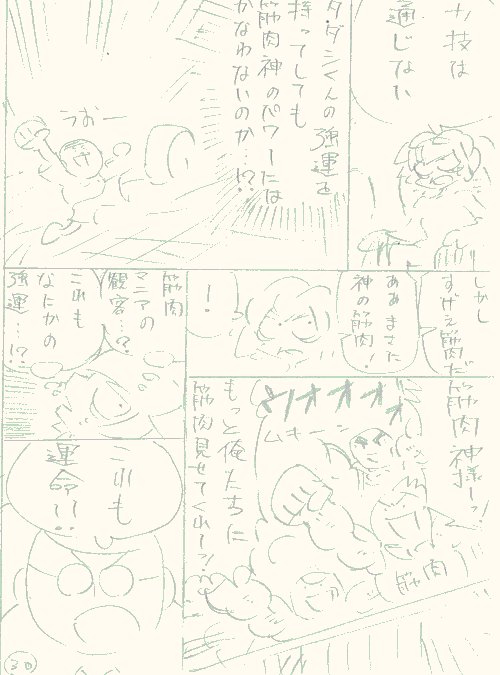 技は
通じない
タダシくんの強運を
持ってしても
筋肉神のパワーには
かなわないのか…!?
うおー
しかし
すげえ筋肉だ
ああまさに
神の筋肉!
!
筋肉
マニアの
観客…?
これも
なにかの
強運…!?
筋肉神様ーッ!
ウオオオオオ
ムキーン
もっと俺たちに
筋肉見せてくれーッ!
筋肉
これも
運命!!
30